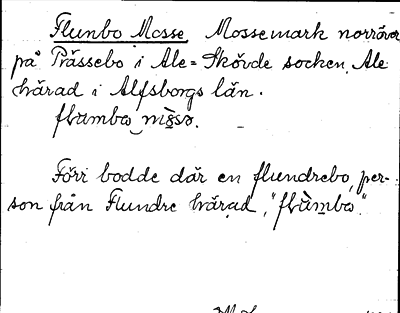 Flunbo Mosse Mossemark norröver
på Prässebo i Ale-Skövde socken, Ale
härad i Alfsborgs län.
flumbo mosse.
Förr bodde där en flundrebo, per-
son från Flundre härad, "flumbo".